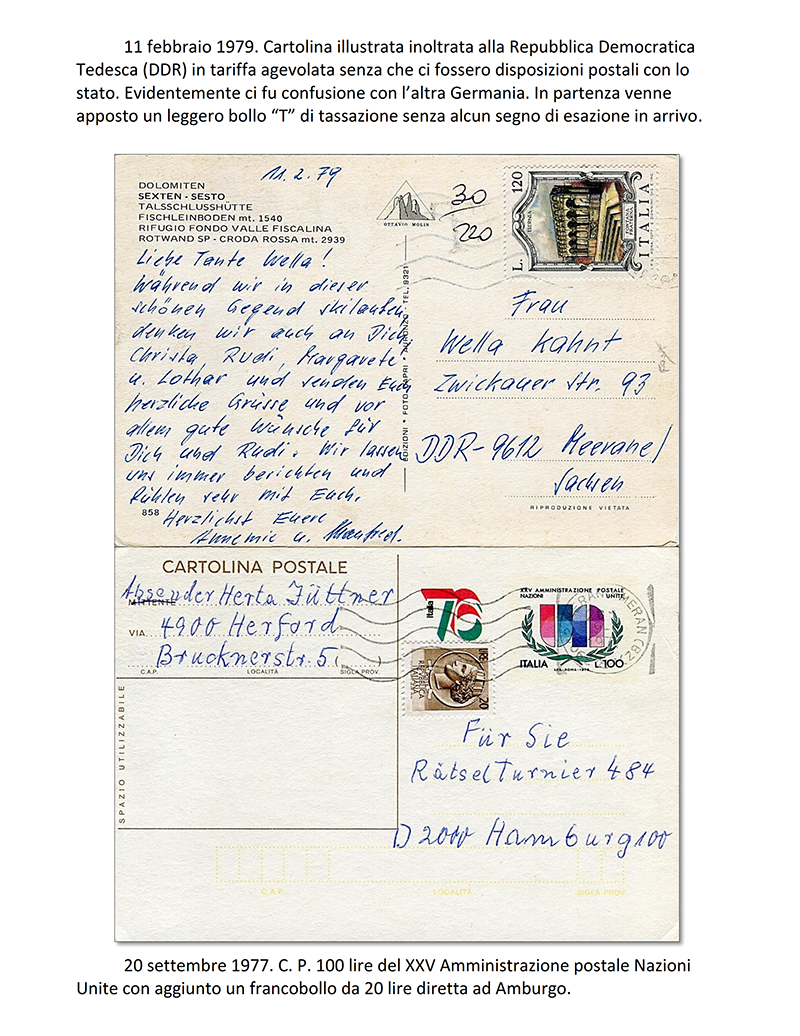 11 febbraio 1979. Cartolina illustrata inoltrata alla Repubblica Democratica
Tedesca (DDR) in tariffa agevolata senza che ci fossero disposizioni postali con lo
stato. Evidentemente ci fu confusione con l'altra Germania. In partenza venne
apposto un leggero bollo “T” di tassazione senza alcun segno di esazione in arrivo.
11.2.79
DOLOMITEN
SEXTEN - SESTO
TALSSCHLUSSHÜTTE
FISCHLEINBODEN mt. 1540
RIFUGIO FONDO VALLE FISCALINA
ROTWAND SP - CRODA ROSSA mt. 2939
OTTAVIO MOLIN
30
220
L. 120
FONTANA FRATERNA
ISERNIA
ITALIA
Liebe Tante Wella!
Während wir in dieser
schönen Gegend skilaufen,
denken wir auch an Dich,
Christa, Rudi, Margarete
u. Lothar und senden Euch
herzliche Grüsse und vor
allem gute Wünsche für
Dich und Rudi. Wir lassen
uns immer berichten und
fühlen sehr mit Euch.
Herzlichst Euere
Annemie u. Manfred.
858
EDIZIONI • FOTO GHEDINA
TEL. 9321
Frau
Wella Kahnt
Zwickauer Str. 93
DDR-9612 Meerane/
Sachsen
RIPRODUZIONE VIETATA
CARTOLINA POSTALE
Absender Herta Jüttner
MITTENTE
VIA
4900 Herford
Brucknerstr. 5
C.A.P. LOCALITÀ SIGLA PROV.
SPAZIO UTILIZZABILE
Italia 76
XXV AMMINISTRAZIONE POSTALE
NAZIONI UNITE
ITALIA L.100
I.P.S.-ROMA-1976
MERAN (BZ)
REPUBBLICA ITALIANA
LIRE 20
Für Sie
RätselTurnier 484
D 2000 Hamburg 100
C.A.P. LOCALITÀ SIGLA PROV.
20 settembre 1977. C. P. 100 lire del XXV Amministrazione postale Nazioni
Unite con aggiunto un francobollo da 20 lire diretta ad Amburgo.